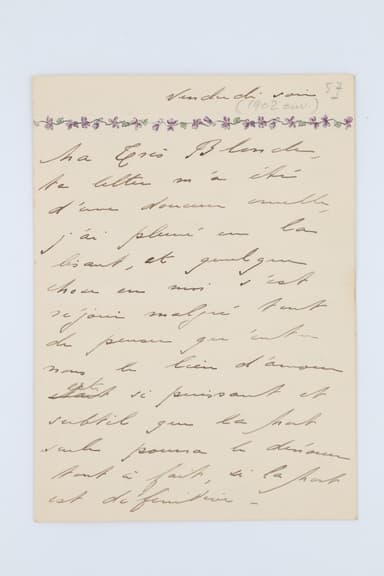 Vendredi soir
57
(1902 env.)
Ma Très Blonde,
ta lettre m'a été
d'une douceur cruelle,
j'ai pleuré en la
lisant, et quelque
chose en moi s'est
réjoui malgré tout
de penser qu'entre
nous le lien d'amour
est
était si puissant et
subtil que la mort
seule pourra le dénouer
tout à fait, si la mort
est définitive –